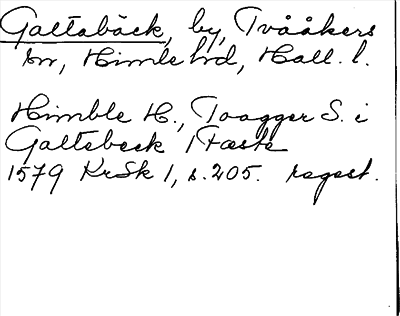 Galtabäck, by, Tvååkers
sn, Himle hd, Hall. l.
Himble H., Toagger S. i
Galtebeck 1 Fæste
1579 KrSk 1, s. 205. regest.